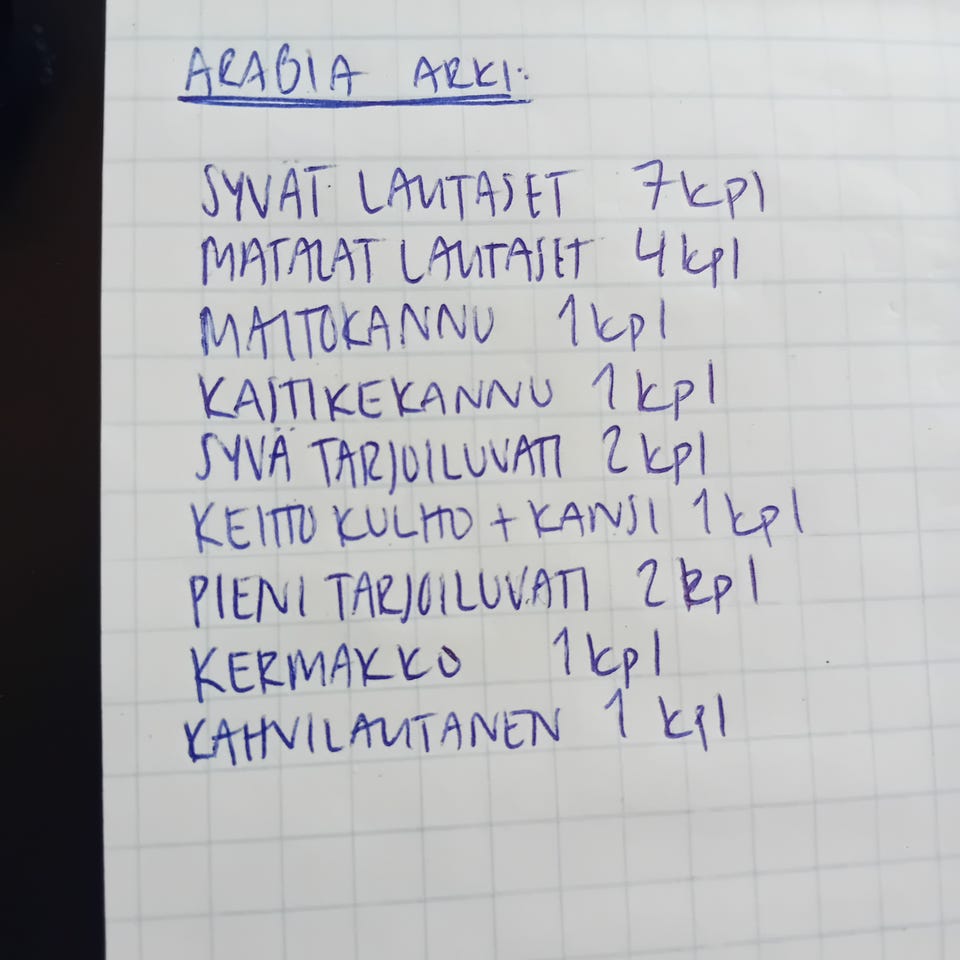 ARABIA ARKI:
SYVÄT LAUTASET 7 kpl
MATALAT LAUTASET 4 kpl
MAITOKANNU 1 kpl
KASTIKEKANNU 1 kpl
SYVÄ TARJOILUVATI 2 kpl
KEITTO KULHO + KANSI 1 kpl
PIENI TARJOILUVATI 2 kpl
KERMAKKO 1 kpl
KAHVILAUTANEN 1 kpl